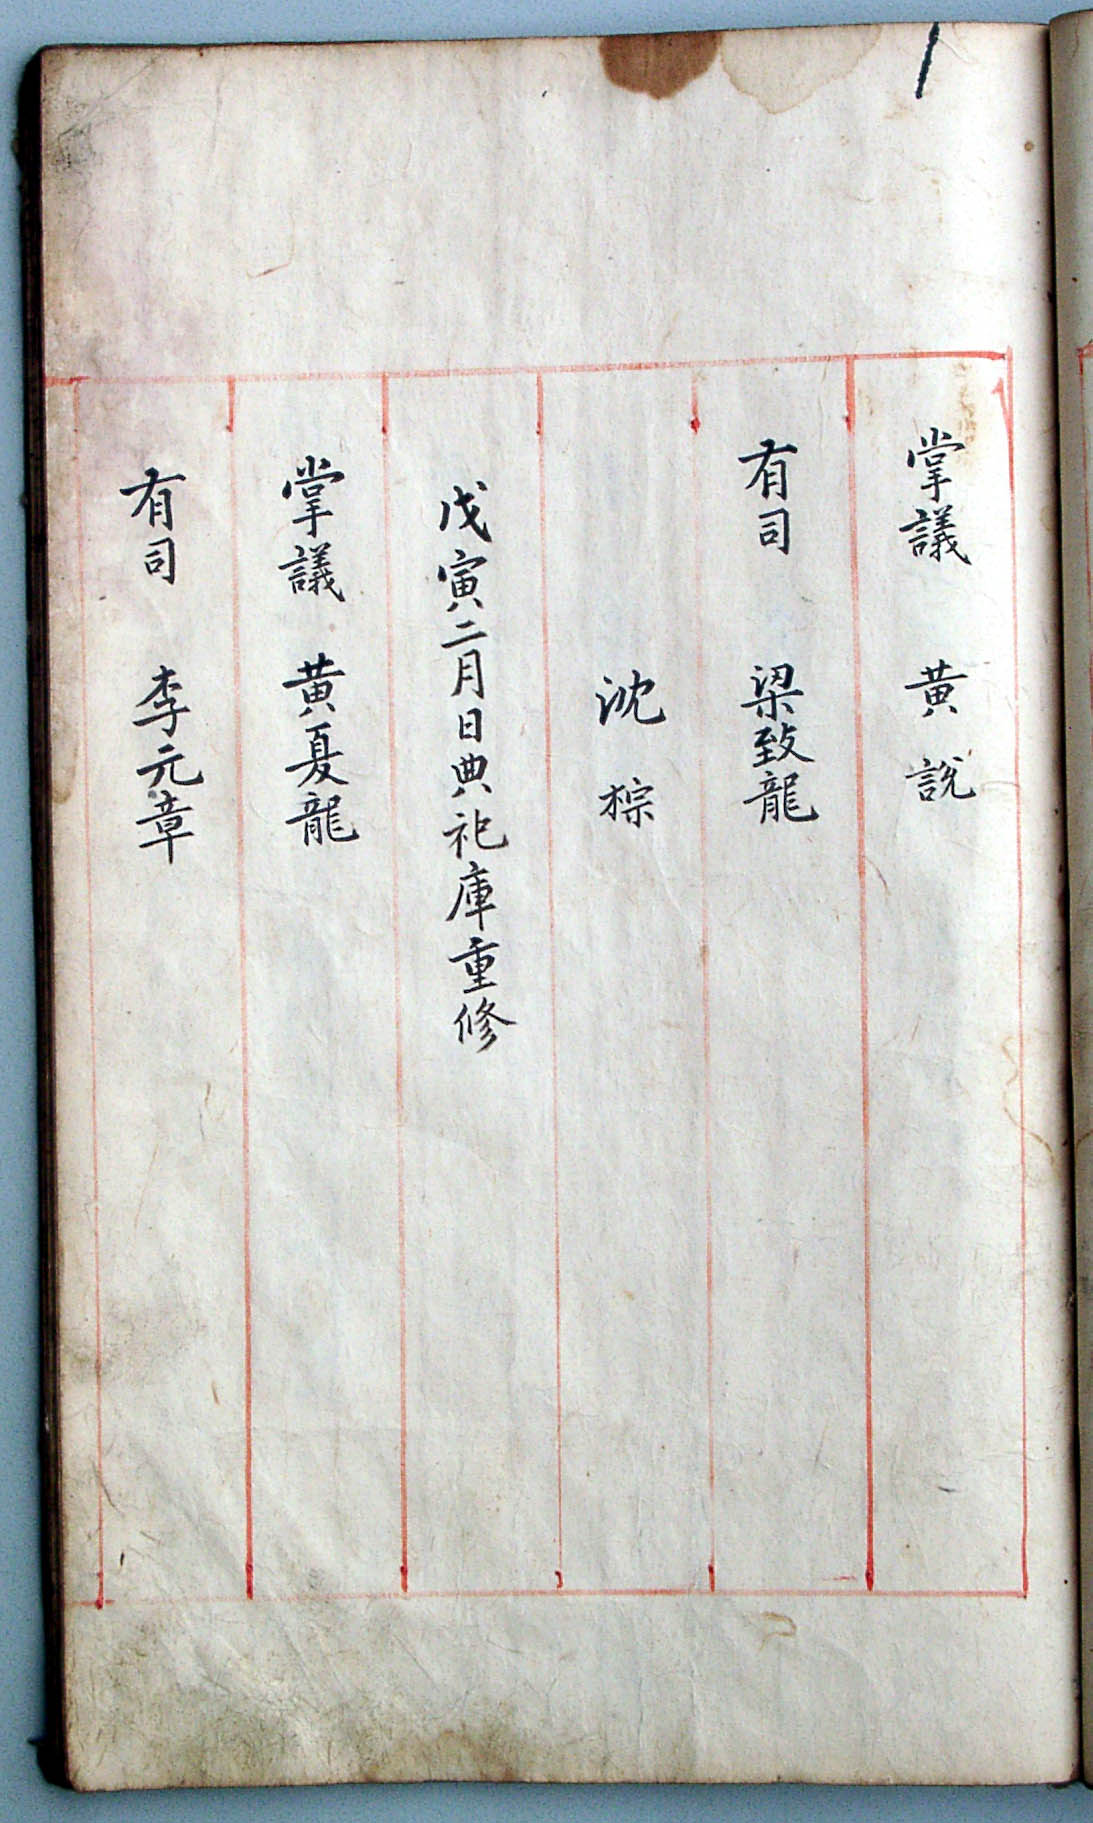 掌議 黄說
有司 梁致龍
沈棕
戊寅二月日典祀庫重修
掌議 黄夏龍
有司 李元章